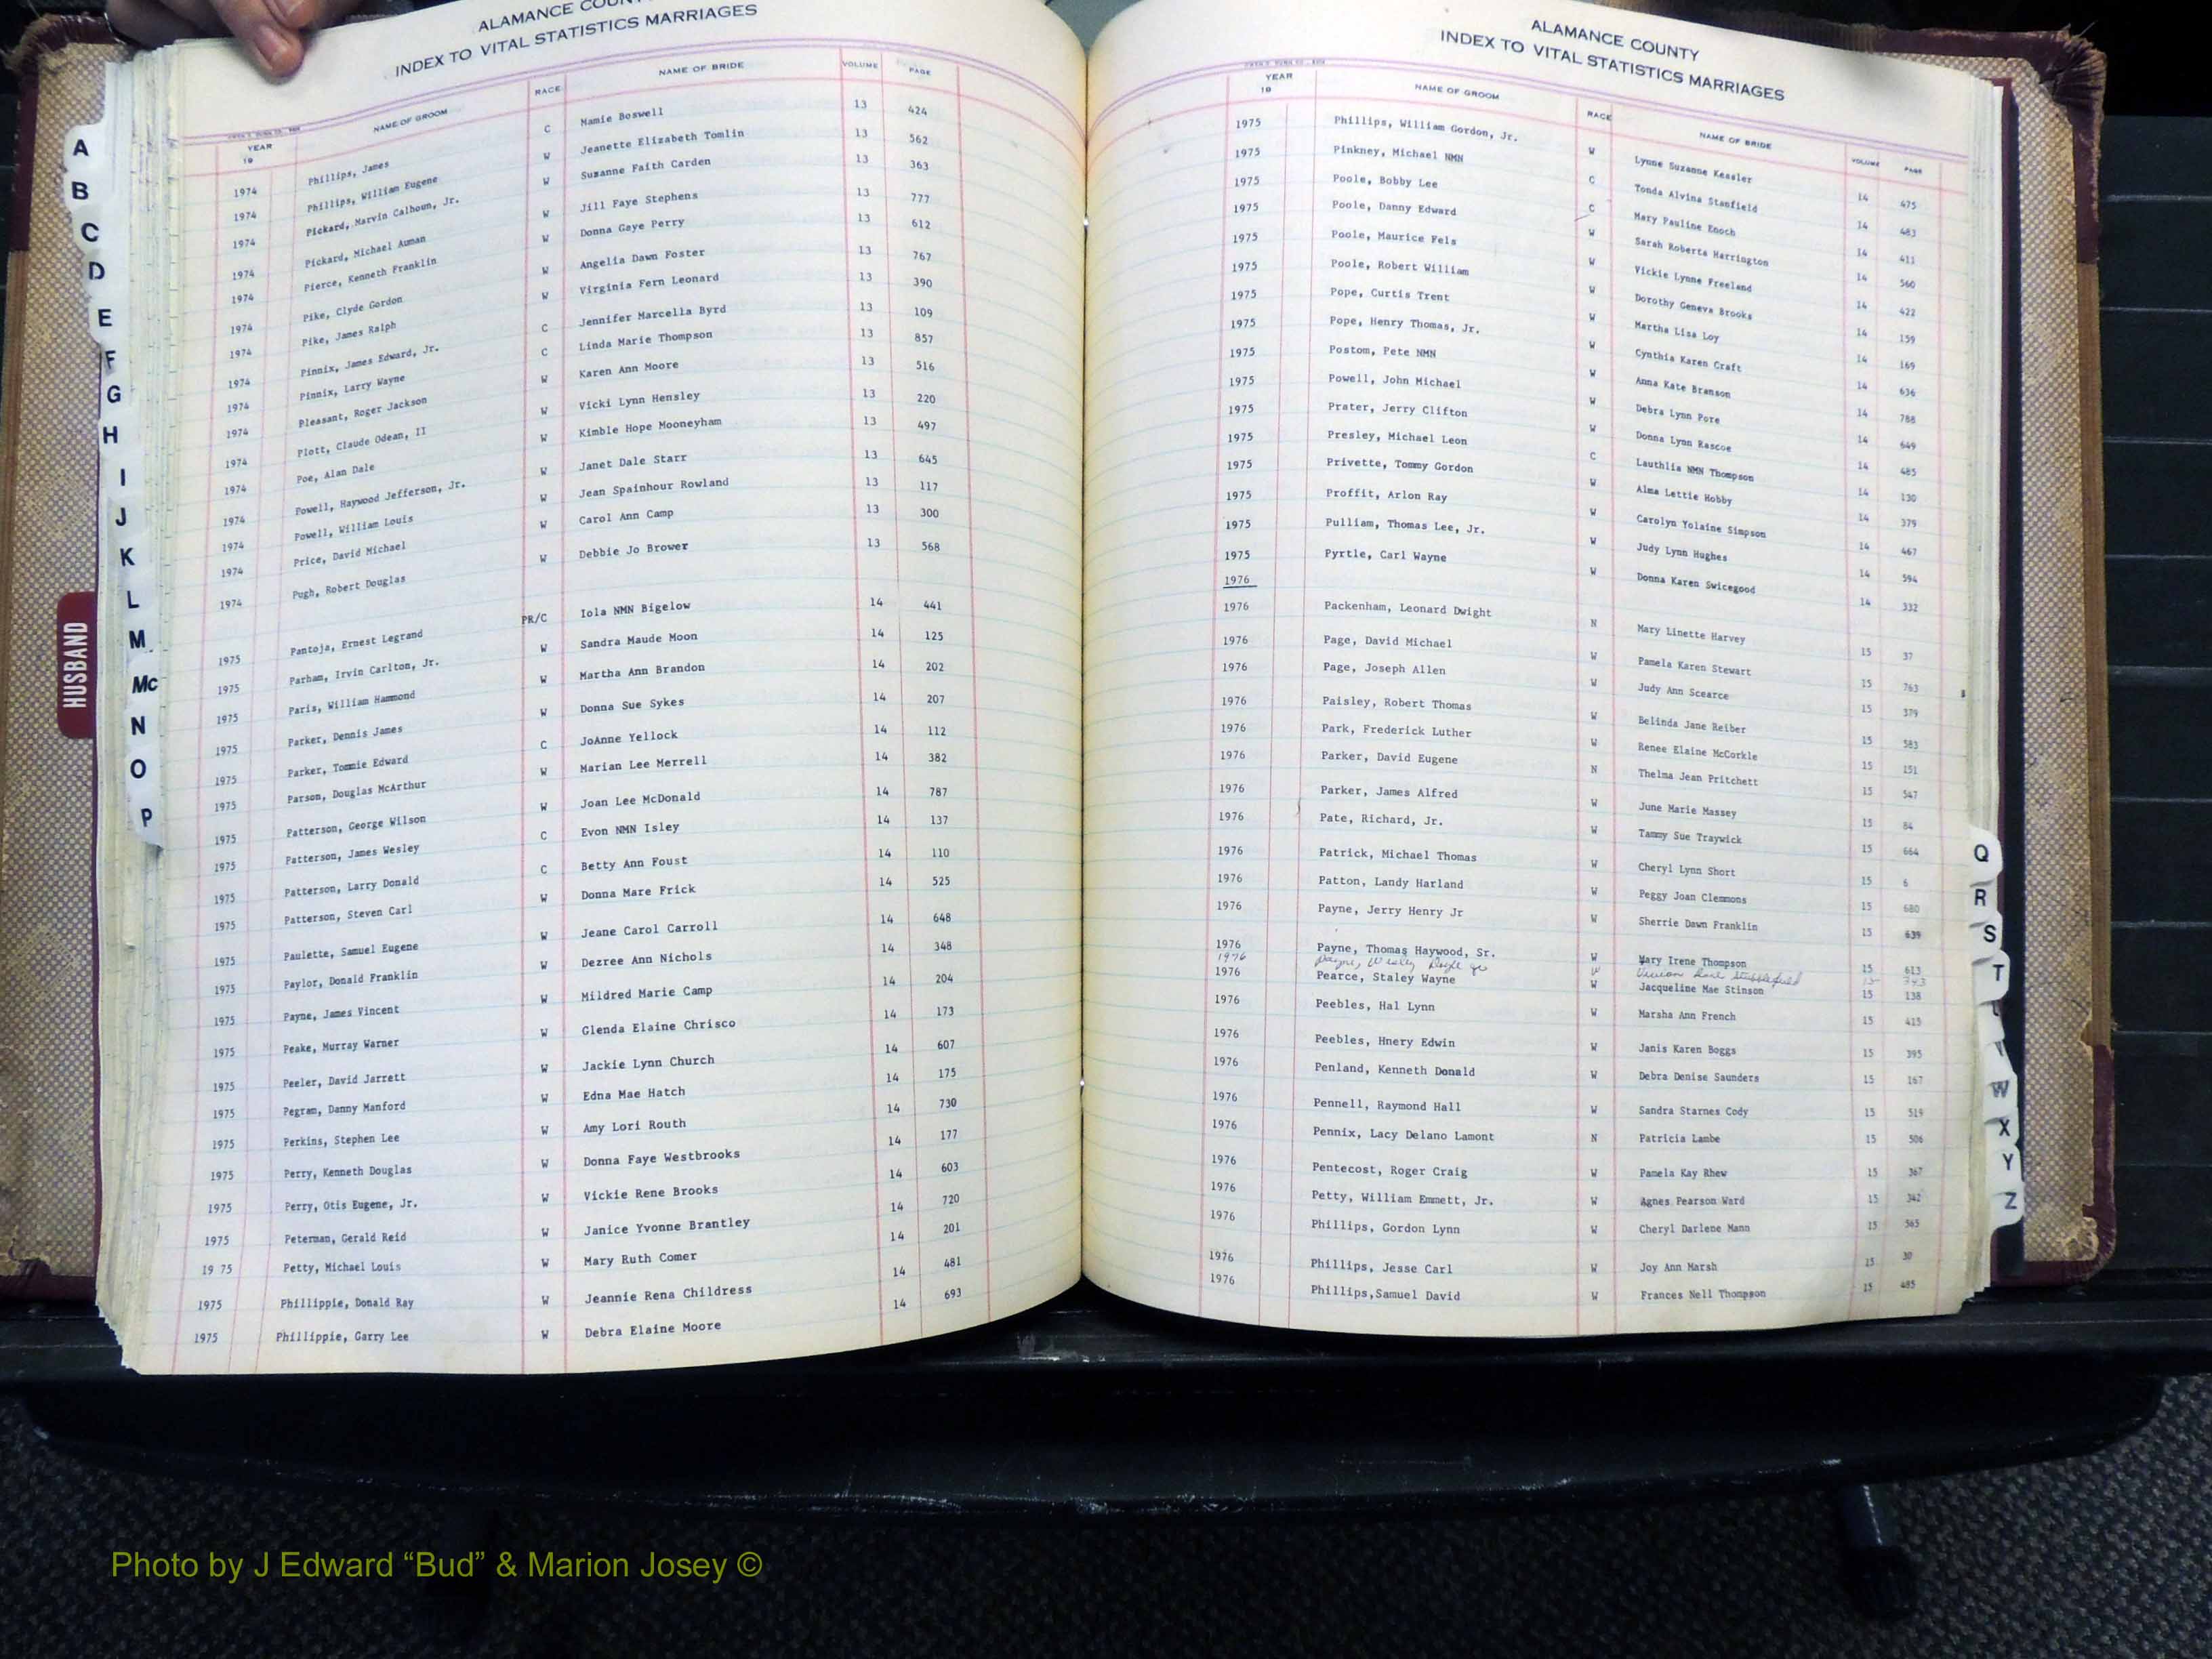 ALAMANCE COUN
INDEX TO VITAL STATISTICS MARRIAGES
YEAR 19 NAME OF GROOM RACE NAME OF BRIDE VOLUME PAGE
1974 Phillips, James C Mamie Boswell 13 424
1974 Phillips, William Eugene W Jeanette Elizabeth Tomlin 13 562
1974 Pickard, Marvin Calhoun, Jr. W Suzanne Faith Carden 13 363
1974 Pickard, Michael Auman W Jill Faye Stephens 13 777
1974 Pierce, Kenneth Franklin W Donna Gaye Perry 13 612
1974 Pike, Clyde Gordon W Angelia Dawn Foster 13 767
1974 Pike, James Ralph W Virginia Fern Leonard 13 390
1974 Pinnix, James Edward, Jr. C Jennifer Marcella Byrd 13 109
1974 Pinnix, Larry Wayne C Linda Marie Thompson 13 857
1974 Pleasant, Roger Jackson W Karen Ann Moore 13 516
1974 Plott, Claude Odean, II W Vicki Lynn Hensley 13 220
1974 Poe, Alan Dale W Kimble Hope Mooneyham 13 497
1974 Powell, Haywood Jefferson, Jr. W Janet Dale Starr 13 645
1974 Powell, William Louis W Jean Spainhour Rowland 13 117
1974 Price, David Michael W Carol Ann Camp 13 300
1974 Pugh, Robert Douglas W Debbie Jo Brower 13 568
1975 Pantoja, Ernest Legrand PR/C Iola NMN Bigelow 14 441
1975 Parham, Irvin Carlton, Jr. W Sandra Maude Moon 14 125
1975 Paris, William Hammond W Martha Ann Brandon 14 202
1975 Parker, Dennis James W Donna Sue Sykes 14 207
1975 Parker, Tommie Edward C JoAnne Yellock 14 112
1975 Parson, Douglas McArthur W Marian Lee Merrell 14 382
1975 Patterson, George Wilson W Joan Lee McDonald 14 787
1975 Patterson, James Wesley C Evon NMN Isley 14 137
1975 Patterson, Larry Donald C Betty Ann Foust 14 110
1975 Patterson, Steven Carl W Donna Mare Frick 14 525
1975 Paulette, Samuel Eugene W Jeane Carol Carroll 14 648
1975 Paylor, Donald Franklin W Dezree Ann Nichols 14 348
1975 Payne, James Vincent W Mildred Marie Camp 14 204
1975 Peake, Murray Warner W Glenda Elaine Chrisco 14 173
1975 Peeler, David Jarrett W Jackie Lynn Church 14 607
1975 Pegram, Danny Manford W Edna Mae Hatch 14 175
1975 Perkins, Stephen Lee W Amy Lori Routh 14 730
1975 Perry, Kenneth Douglas W Donna Faye Westbrooks 14 177
1975 Perry, Otis Eugene, Jr. W Vickie Rene Brooks 14 603
1975 Peterman, Gerald Reid W Janice Yvonne Brantley 14 720
19 75 Petty, Michael Louis W Mary Ruth Comer 14 201
1975 Phillippie, Donald Ray W Jeannie Rena Childress 14 481
1975 Phillippie, Garry Lee W Debra Elaine Moore 14 693
A
B
C
D
E
F
G
H
I
J
K
L
M
Mc
N
O
P
HUSBAND
ALAMANCE COUNTY
INDEX TO VITAL STATISTICS MARRIAGES
YEAR 19 NAME OF GROOM RACE NAME OF BRIDE VOLUME PAGE
1975 Phillips, William Gordon, Jr. W Lynne Suzanne Kessler 14 475
1975 Pinkney, Michael NMN C Tonda Alvina Stanfield 14 483
1975 Poole, Bobby Lee C Mary Pauline Enoch 14 411
1975 Poole, Danny Edward W Sarah Roberta Harrington 14 560
1975 Poole, Maurice Fels W Vickie Lynne Freeland 14 422
1975 Poole, Robert William W Dorothy Geneva Brooks 14 159
1975 Pope, Curtis Trent W Martha Lisa Loy 14 169
1975 Pope, Henry Thomas, Jr. W Cynthia Karen Craft 14 636
1975 Postom, Pete NMN W Anna Kate Branson 14 788
1975 Powell, John Michael W Debra Lynn Pore 14 649
1975 Prater, Jerry Clifton W Donna Lynn Rascoe 14 485
1975 Presley, Michael Leon C Lauthlia NMN Thompson 14 130
1975 Privette, Tommy Gordon W Alma Lettie Hobby 14 379
1975 Proffit, Arlon Ray W Carolyn Yolaine Simpson 14 467
1975 Pulliam, Thomas Lee, Jr. W Judy Lynn Hughes 14 594
1975 Pyrtle, Carl Wayne W Donna Karen Swicegood 14 332
1976
1976 Packenham, Leonard Dwight N Mary Linette Harvey 15 37
1976 Page, David Michael W Pamela Karen Stewart 15 763
1976 Page, Joseph Allen W Judy Ann Scearce 15 379
1976 Paisley, Robert Thomas W Belinda Jane Reiber 15 583
1976 Park, Frederick Luther W Renee Elaine McCorkle 15 151
1976 Parker, David Eugene N Thelma Jean Pritchett 15 547
1976 Parker, James Alfred W June Marie Massey 15 84
1976 Pate, Richard, Jr. W Tammy Sue Traywick 15 664
1976 Patrick, Michael Thomas W Cheryl Lynn Short 15 6
1976 Patton, Landy Harland W Peggy Joan Clemmons 15 680
1976 Payne, Jerry Henry Jr W Sherrie Dawn Franklin 15 639
1976 Payne, Thomas Haywood, Sr. W Mary Irene Thompson 15 613
1976 Payne, Wesley Doyle Jr W Vivian Stubblefield 15 343
1976 Pearce, Staley Wayne W Jacqueline Mae Stinson 15 138
1976 Peebles, Hal Lynn W Marsha Ann French 15 415
1976 Peebles, Hnery Edwin W Janis Karen Boggs 15 395
1976 Penland, Kenneth Donald W Debra Denise Saunders 15 167
1976 Pennell, Raymond Hall W Sandra Starnes Cody 15 519
1976 Pennix, Lacy Delano Lamont N Patricia Lambe 15 506
1976 Pentecost, Roger Craig W Pamela Kay Rhew 15 367
1976 Petty, William Emmett, Jr. W Agnes Pearson Ward 15 342
1976 Phillips, Gordon Lynn W Cheryl Darlene Mann 15 565
1976 Phillips, Jesse Carl W Joy Ann Marsh 15 30
1976 Phillips,Samuel David W Frances Nell Thompson 15 485
Q
R
S
T
W
X
Y
Z
Photo by J Edward “Bud” & Marion Josey ©